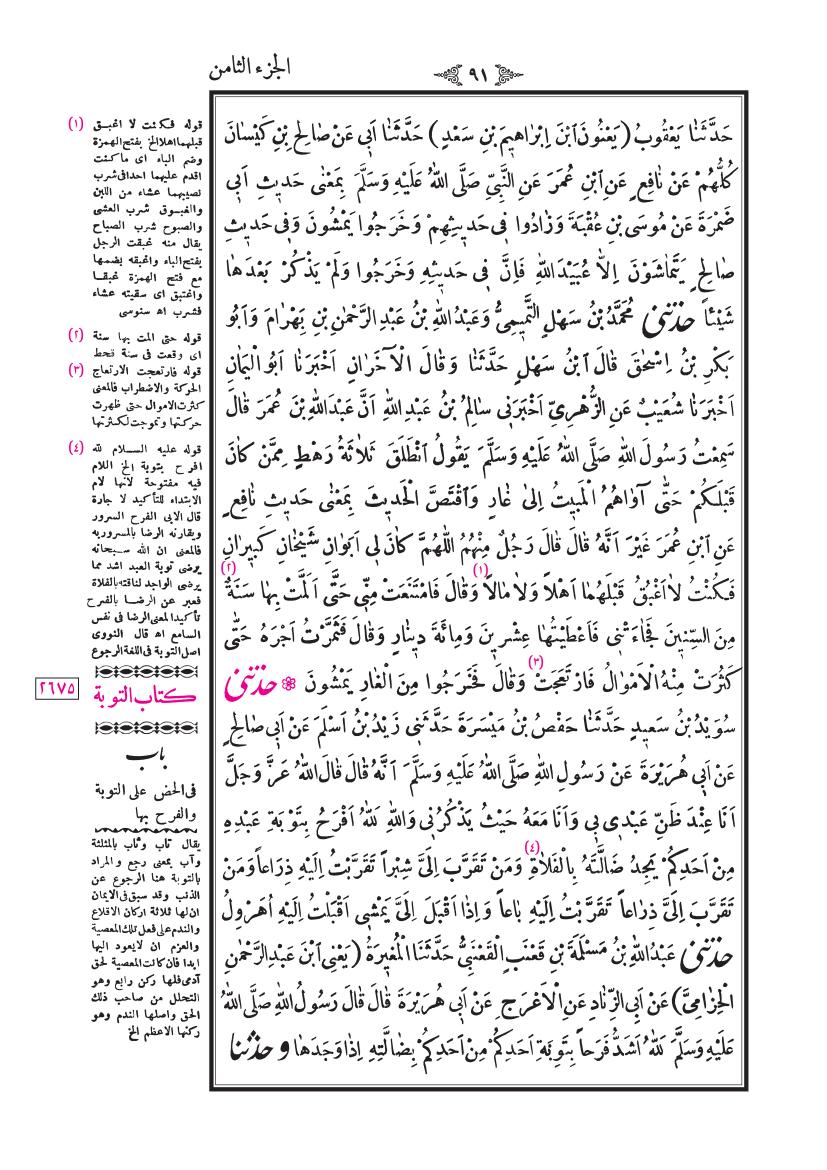 الجزء الثامن
٩١
حَدَّثَنَا يَعْقُوبُ (يَعْنُونَ ٱبْنَ اِبْرَاهِيمَ بْنِ سَعْدٍ) حَدَّثَنَا اَبِي عَنْ صَالِحِ بْنِ كَيْسَانَ
كُلُّهُمْ عَنْ نَافِعٍ عَنِ ٱبْنِ عُمَرَ عَنِ النَّبِيِّ صَلَّى اللهُ عَلَيْهِ وَسَلَّمَ بِمَعْنٰى حَديثِ اَبِي
ضَمْرَةَ عَنْ مُوسَى بْنِ عُقْبَةَ وَزَادُوا فِي حَديثِهِمْ وَخَرَجُوا يَمْشُونَ وَفِي حَديثِ
صَالِحٍ يَتَمَاشَوْنَ اِلاَّ عُبَيْدَ اللهِ فَاِنَّ فِي حَديثِهِ وَخَرَجُوا وَلَمْ يَذْكُرْ بَعْدَهَا
شَيْئاً حَدَّثَنِي مُحَمَّدُ بْنُ سَهْلٍ التَّمِيمِيُّ وَعَبْدُ اللهِ بْنُ عَبْدِ الرَّحْمٰنِ بْنِ بَهْرَامَ وَاَبُو
بَكْرِ بْنُ اِسْحٰقَ قَالَ ٱبْنُ سَهْلٍ حَدَّثَنَا وَقَالَ الْآخَرَانِ اَخْبَرَنَا اَبُو الْيَمَانِ
اَخْبَرَنَا شُعَيْبٌ عَنِ الزُّهْرِيِّ اَخْبَرَنِي سَالِمُ بْنُ عَبْدِ اللهِ اَنَّ عَبْدَ اللهِ بْنَ عُمَرَ قَالَ
سَمِعْتُ رَسُولَ اللهِ صَلَّى اللهُ عَلَيْهِ وَسَلَّمَ يَقُولُ ٱنْطَلَقَ ثَلاثَةُ رَهْطٍ مِمَّنْ كَانَ
قَبْلَكُمْ حَتّٰى آوَاهُمُ الْمَبيتُ اِلىٰ غَارٍ وَٱقْتَصَّ الْحَديثَ بِمَعْنٰى حَديثِ نَافِعٍ
عَنِ ٱبْنِ عُمَرَ غَيْرَ اَنَّهُ قَالَ قَالَ رَجُلٌ مِنْهُمُ اللّٰهُمَّ كَانَ لِي اَبَوَانِ شَيْخَانِ كَبيرَانِ
فَكُنْتُ لَا اَغْبُقُ قَبْلَهُمَا اَهْلاً وَلَا مَالاً (١) وَقَالَ فَامْتَنَعَتْ مِنِّي حَتّٰى اَلَمَّتْ بِهَا سَنَةٌ (٢)
مِنَ السِّنينَ فَجَاءَتْنِي فَاَعْطَيْتُهَا عِشْرينَ وَمِائَةَ دينَارٍ وَقَالَ فَثَمَّرْتُ اَجْرَهُ حَتّٰى
كَثُرَتْ مِنْهُ الْاَمْوَالُ فَارْتَعَجَتْ (٣) وَقَالَ فَخَرَجُوا مِنَ الْغَارِ يَمْشُونَ ❁ حَدَّثَنِي
سُوَيْدُ بْنُ سَعيدٍ حَدَّثَنَا حَفْصُ بْنُ مَيْسَرَةَ حَدَّثَنِي زَيْدُ بْنُ اَسْلَمَ عَنْ اَبِي صَالِحٍ
عَنْ اَبِي هُرَيْرَةَ عَنْ رَسُولِ اللهِ صَلَّى اللهُ عَلَيْهِ وَسَلَّمَ اَنَّهُ قَالَ قَالَ اللهُ عَزَّ وَجَلَّ
اَنَا عِنْدَ ظَنِّ عَبْدِي بِي وَاَنَا مَعَهُ حَيْثُ يَذْكُرُنِي وَاللهِ لَلّٰهُ اَفْرَحُ بِتَوْبَةِ عَبْدِهِ
مِنْ اَحَدِكُمْ يَجِدُ ضَالَّتَهُ بِالْفَلَاةِ (٤) وَمَنْ تَقَرَّبَ اِلَيَّ شِبْراً تَقَرَّبْتُ اِلَيْهِ ذِرَاعاً وَمَنْ
تَقَرَّبَ اِلَيَّ ذِرَاعاً تَقَرَّبْتُ اِلَيْهِ بَاعاً وَاِذَا اَقْبَلَ اِلَيَّ يَمْشِي اَقْبَلْتُ اِلَيْهِ اُهَرْوِلُ
حَدَّثَنِي عَبْدُ اللهِ بْنُ مَسْلَمَةَ بْنِ قَعْنَبٍ الْقَعْنَبِيُّ حَدَّثَنَا الْمُغيرَةُ (يَعْنِي ٱبْنَ عَبْدِ الرَّحْمٰنِ
الْحِزَامِيَّ) عَنْ اَبِي الزِّنَادِ عَنِ الْاَعْرَجِ عَنْ اَبِي هُرَيْرَةَ قَالَ قَالَ رَسُولُ اللهِ صَلَّى اللهُ
عَلَيْهِ وَسَلَّمَ لَلّٰهُ اَشَدُّ فَرَحاً بِتَوْبَةِ اَحَدِكُمْ مِنْ اَحَدِكُمْ بِضَالَّتِهِ اِذَا وَجَدَهَا وحَدَّثَنَا
(١) قوله فكنت لا اغبق
قبلهما اهلا الخ بفتح الهمزة
وضم الباء اى ماكنت
اقدم عليهما احدا فى شرب
نصيبهما عشاء من اللبن
والغبوق شرب العشى
والصبوح شرب الصباح
يقال منه غبقت الرجل
بفتح الباء واغبقه بضمها
مع فتح الهمزة غبقا
واغتبق اى سقيته عشاء
فشرب اه سنوسى
(٢) قوله حتى المت بها سنة
اى وقعت فى سنة قحط
(٣) قوله فارتعجت الارتعاج
الحركة والاضطراب فالمعنى
كثرت الاموال حتى ظهرت
حركتها وتموجت لكثرتها
(٤) قوله عليه السلام لله
افرح بتوبة الخ اللام
فيه مفتوحة لانها لام
الابتداء للتأكيد لا جارة
قال الابى الفرح السرور
ويقارنه الرضا بالمسروربه
فالمعنى ان الله سبحانه
يرضى توبة العبد اشد مما
يرضى الواجد لناقته بالفلاة
فعبر عن الرضا بالفرح
تأكيدا لمعنى الرضا فى نفس
السامع اه قال النووى
اصل التوبة فى اللغة الرجوع
٢٦٧٥
كتاب التوبة
باب
فى الحض على التوبة
والفرح بها
يقال تاب وثاب بالمثلثة
وآب بمعنى رجع والمراد
بالتوبة هنا الرجوع عن
الذنب وقد سبق فى الايمان
ان لها ثلاثة اركان الاقلاع
والندم على فعل تلك المعصية
والعزم ان لايعود اليها
ابدا فان كانت المعصية لحق
آدمى فلها ركن رابع وهو
التحلل من صاحب ذلك
الحق واصلها الندم وهو
ركنها الاعظم الخ